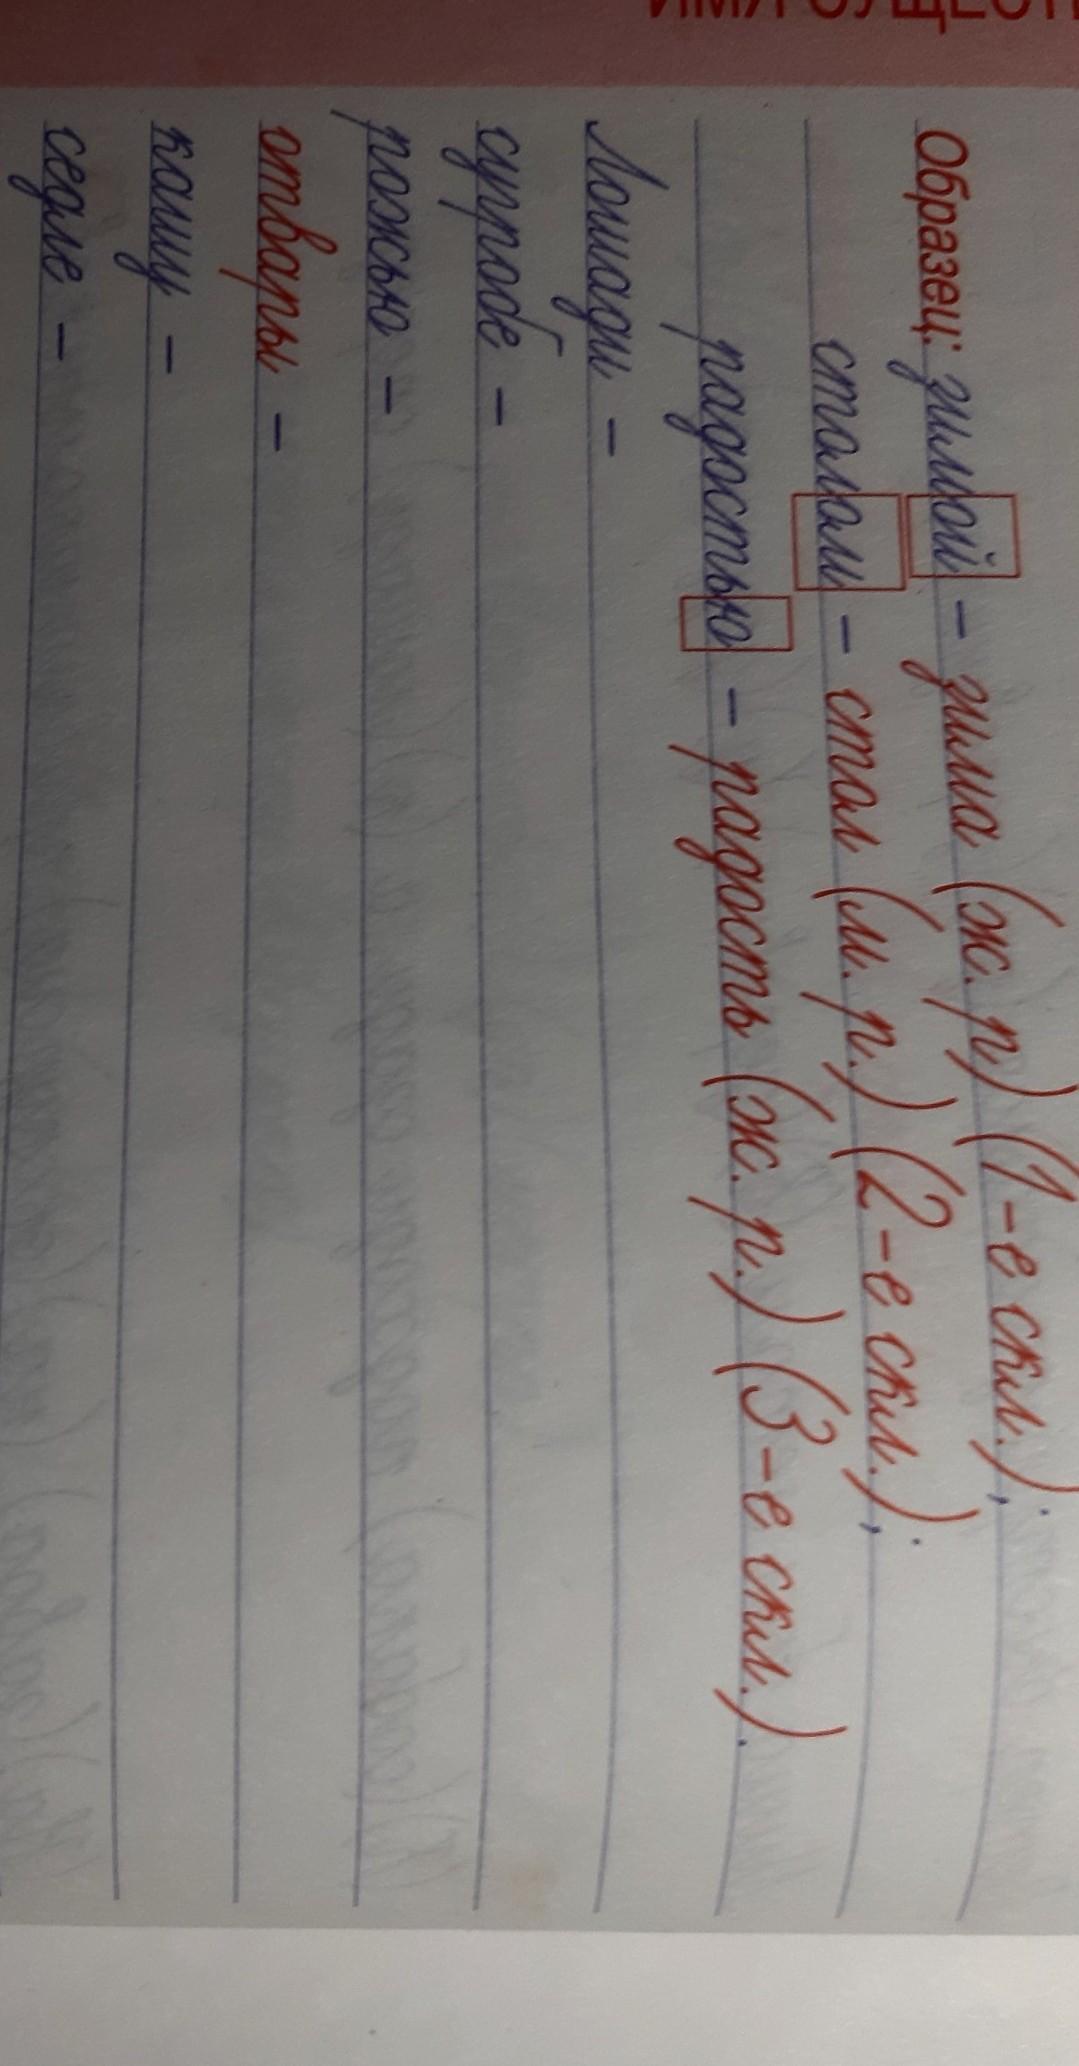 Образец: зимой – зима (ж. р.) (1-е скл.);
столом – стол (м. р.) (2-е скл.);
радостью – радость (ж. р.) (3-е скл.).
Лошади –
сугробе –
рожью –
отвары –
кашу –
седле –